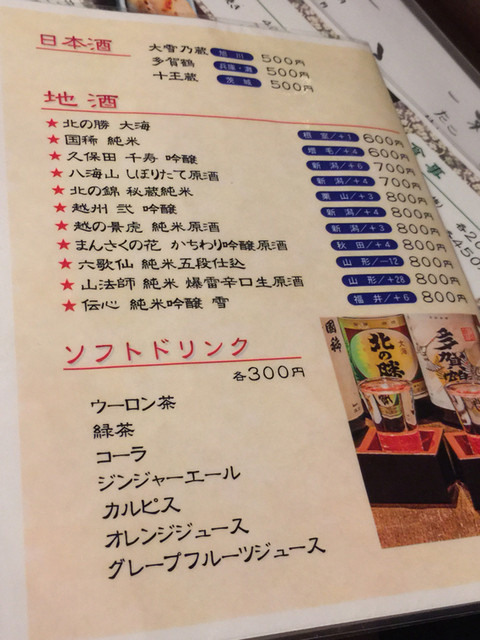 日本酒
大雪乃蔵 旭川 500円
多賀鶴 兵庫・灘 500円
十王蔵 茨城 500円
地酒
★北の勝 大海 根室/+1 600円
★国稀 純米 増毛/+4 600円
★久保田 千寿 吟醸 新潟/+6 700円
★八海山 しぼりたて原酒 新潟/+4 700円
★北の錦 秘蔵純米 栗山/+3 800円
★越州 弐 吟醸 新潟/+4 800円
★越の景虎 純米原酒 新潟/+3 800円
★まんさくの花 かちわり吟醸原酒 秋田/+4 800円
★六歌仙 純米五段仕込 山形/−12 800円
★山法師 純米 爆雷辛口生原酒 山形/+28 800円
★伝心 純米吟醸 雪 福井/+6 800円
ソフトドリンク
各300円
ウーロン茶
緑茶
コーラ
ジンジャーエール
カルピス
オレンジジュース
グレープフルーツジュース
国稀
北の勝
大海
多賀鶴
たこ